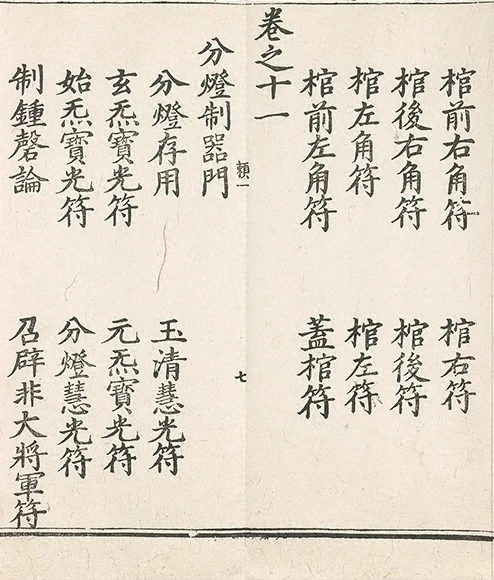 棺前右角符 棺右符
棺後右角符 棺後符
棺左角符 棺左符
棺前左角符 蓋棺符
卷之十一
頖一 七
分燈制器門
分燈存用 玉清慧光符
玄炁寶光符 元炁寶光符
始炁寶光符 分燈慧光符
制鍾磬論 召辟非大將軍符